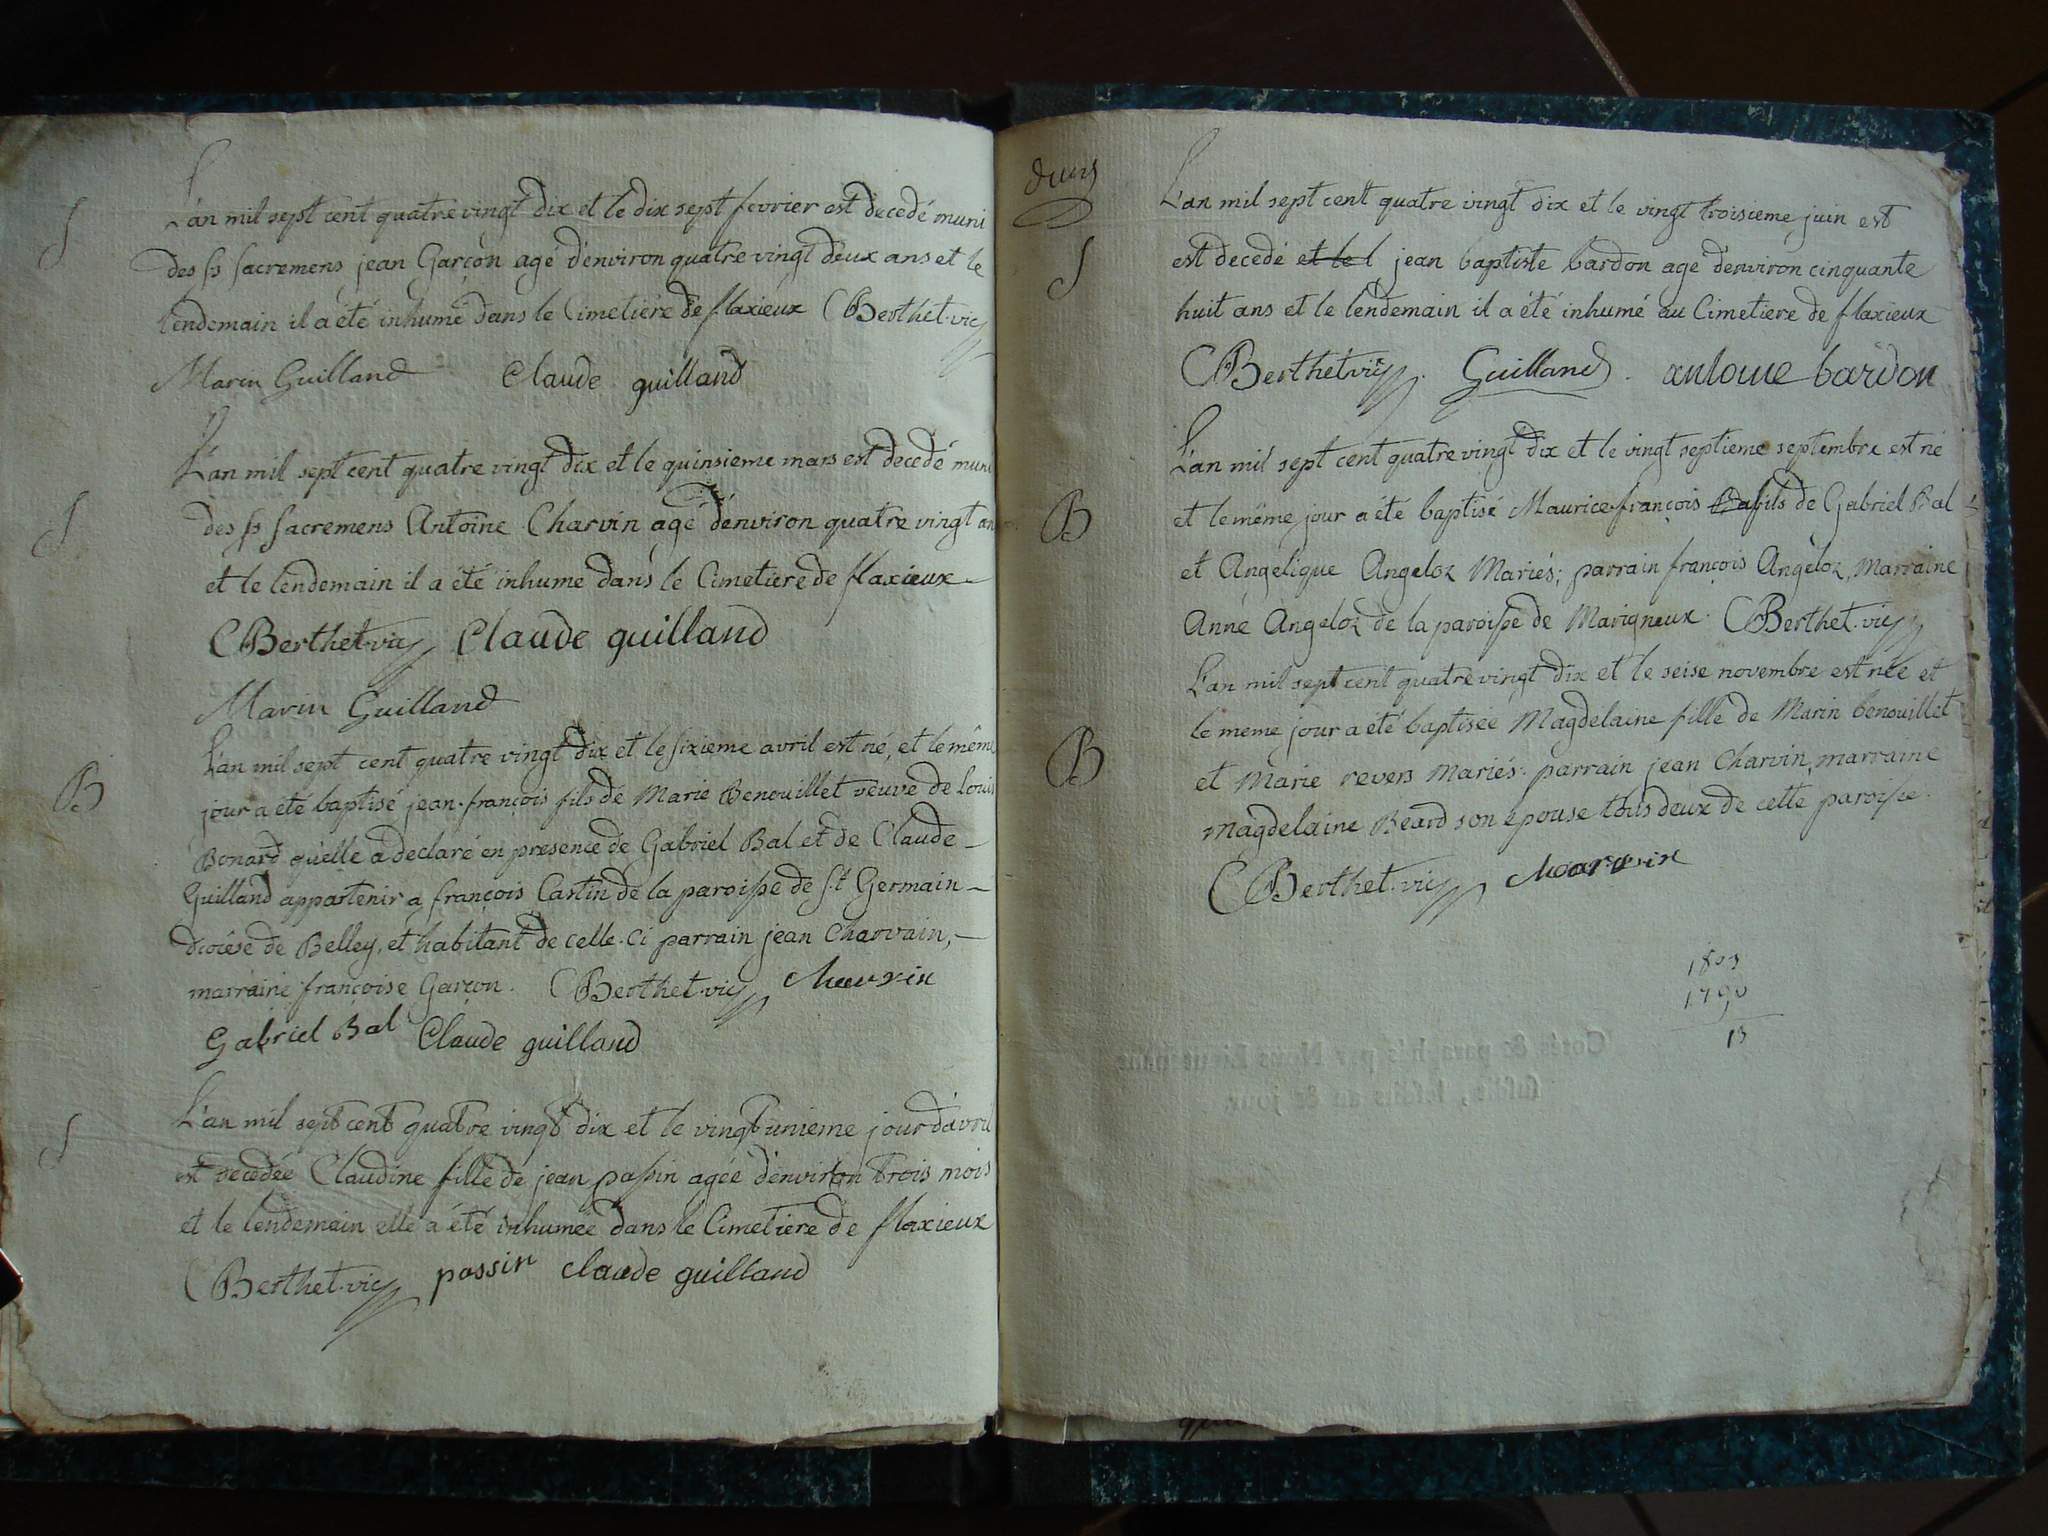 S
L'an mil sept cent quatre vingt dix et le dix sept fevrier est decedé muni
des ss sacremens jean Garçon agé d'environ quatre vingt deux ans et le
lendemain il a été inhumé dans le Cimetière de flaxieux Berthet vic
Marin Guilland Claude guilland
S
L'an mil sept cent quatre vingt dix et le quinsieme mars est decedé muni
des ss sacremens Antoine Charvin agé d'environ quatre vingt an
et le lendemain il a été inhumé dans le Cimetiere de flaxieux
Berthet vic Claude guilland
Marin Guilland
B
L'an mil sept cent quatre vingt dix et le sixieme avril est né, et le même
jour a été baptisé jean-françois fils de Marie Benouillet veuve de Louis
Bonard qu'elle a declaré en presence de Gabriel Bal et de Claude
Guilland appartenir a françois Castin de la paroisse de S.t Germain
diocèse de Belley, et habitant de celle-ci parrain jean Charvain,
marraine françoise Garçon. Berthet vic
Gabriel Bal Claude guilland
S
L'an mil sept cent quatre vingt dix et le vingt unieme jour d'avril
est decedée Claudine fille de jean passin agée d'environ trois mois
et le lendemain elle a été inhumée dans le Cimetiere de flaxieux
Berthet vic passin claude guilland
L'an mil sept cent quatre vingt dix et le vingt troisieme juin est
S
est decedé et le l jean baptiste bardon agé d'environ cinquante
huit ans et le lendemain il a été inhumé au Cimetiere de flaxieux
Berthet vic Guilland antoine bardon
L'an mil sept cent quatre vingt dix et le vingt septieme septembre est né
B
et le même jour a été baptisé Maurice-françois fils de Gabriel Bal
et Angelique Angeloz Mariés; parrain françois Angeloz, Marraine
Anne Angeloz de la paroisse de Marigneux. Berthet vic
L'an mil sept cent quatre vingt dix et le seise novembre est née et
le meme jour a été baptisée Magdelaine fille de Marin benouillet
B
et Marie revers Mariés. parrain jean Charvin, marraine
Magdelaine Beard son épouse tous deux de cette paroisse.
Berthet vic
1803
1790
13